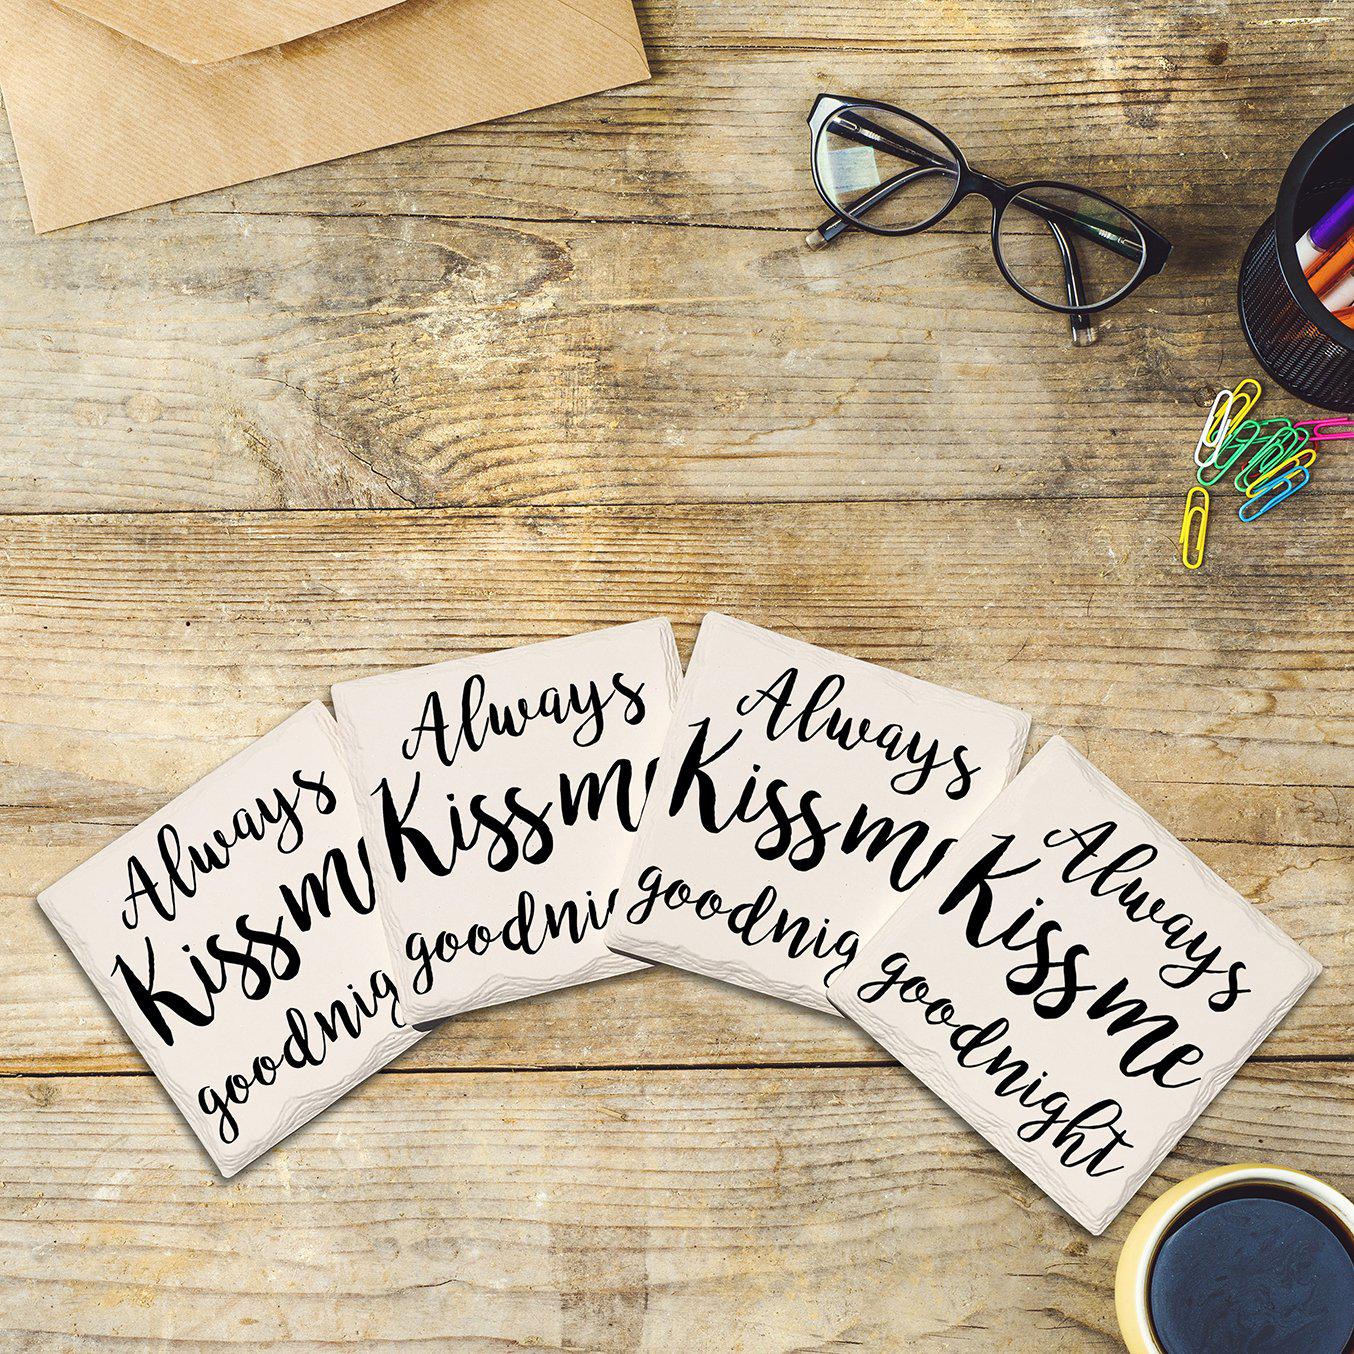 Always
Kiss m
goodnig
Always
Kiss m
goodni
Always
Kiss me
goodnig
Always
Kiss me
goodnight